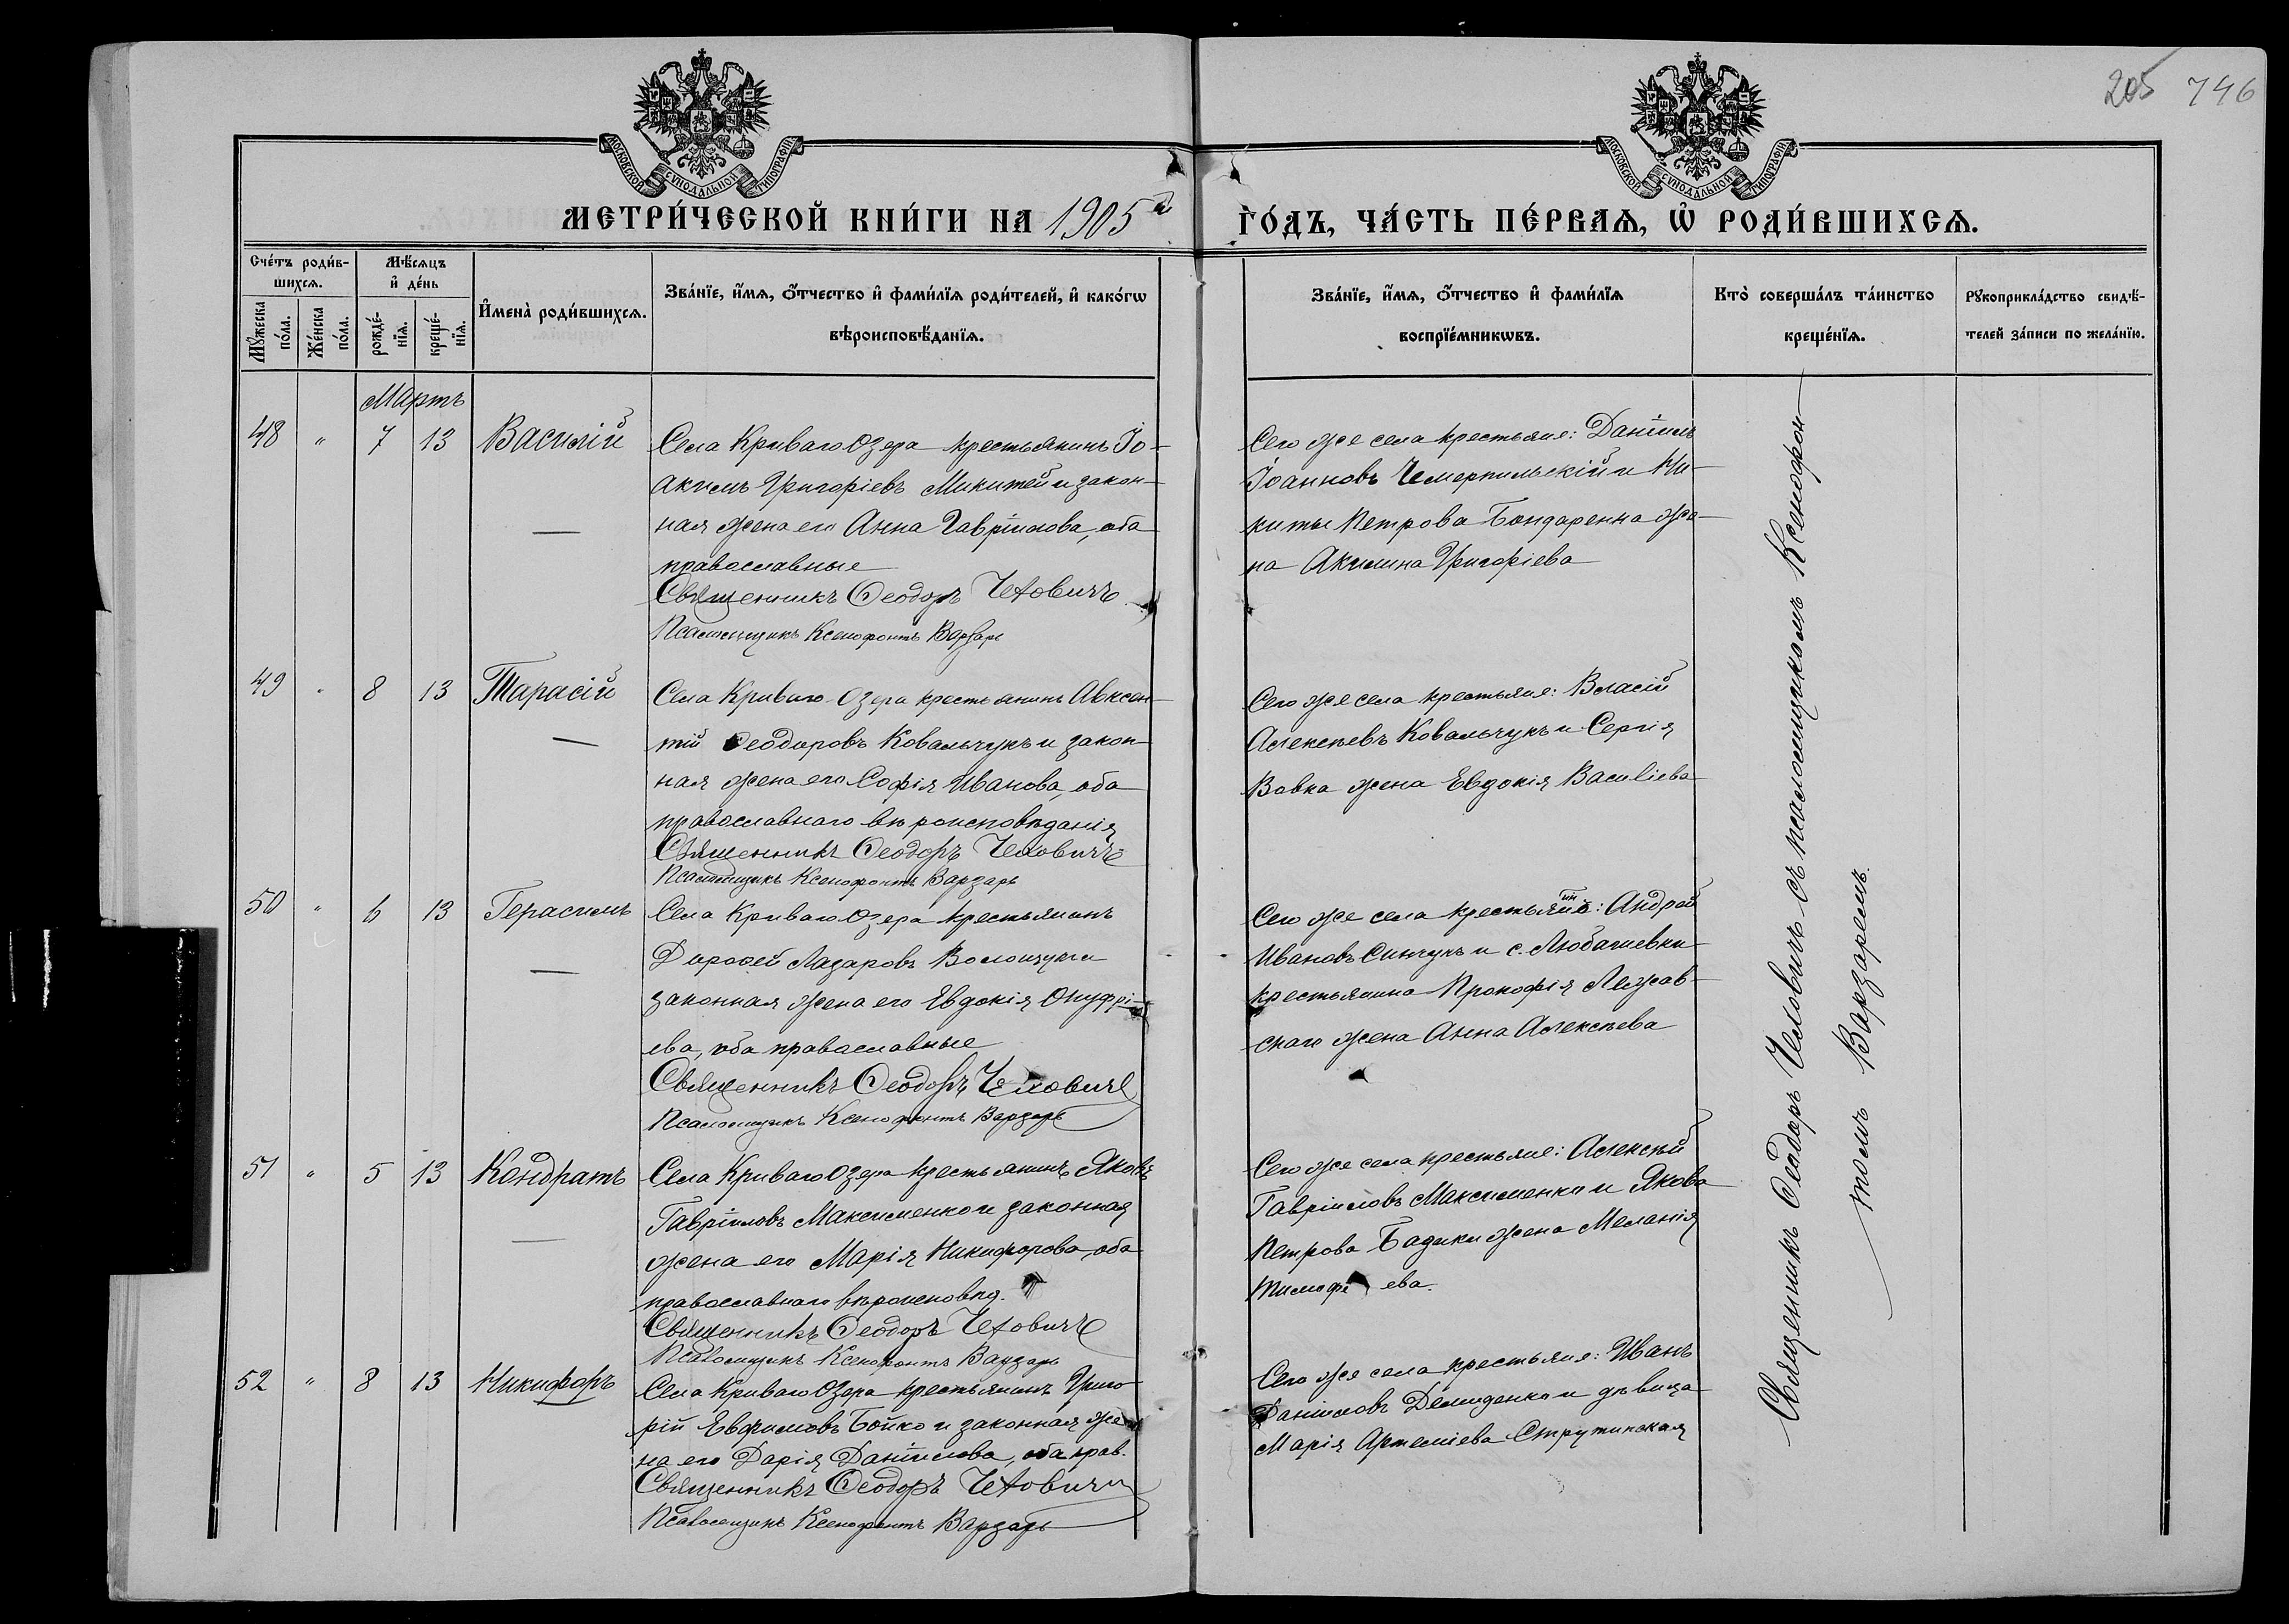 205 746
МОСКОВСКОЙ СѴНОДАЛЬНОЙ ТИПОГРАФІИ
МОСКОВСКОЙ СѴНОДАЛЬНОЙ ТИПОГРАФІИ
МЕТРИ́ЧЕСКОЙ КНИ́ГИ НА 1905й ГО́ДЪ, ЧА́СТЬ ПЕ́РВАѦ, Ѡ҆ РОДИ́ВШИХСѦ.
Сче́тъ роди́в-
шихсѧ.
Мꙋ́жеска
по́ла.
Же́нска
по́ла.
Мѣ́сѧцъ
и҆ де́нь
рожде́-
нїѧ.
креще́-
нїѧ.
И҆мена̀ роди́вшихсѧ.
Зва́нїе, и҆́мѧ, ѻ҆́тчество и҆ фами́лїѧ роди́телей, и҆ како́гѡ
вѣроисповѣ́данїѧ.
Зва́нїе, и҆́мѧ, ѻ҆́тчество и҆ фами́лїѧ
воспрїе́мникѡвъ.
Кто̀ соверша́лъ та́инство
креще́нїѧ.
Рꙋкоприкла́дство свидѣ́-
телей за́писи по жела́нїю.
Мартъ
48 " 7 13 Василій
Села Криваго Озера крестьянинъ Іо-
акимъ Григоріевъ Микитей и закон-
ная жена его Анна Гавріилова, оба
православные
Священникъ Ѳеодоръ Чеховичъ
Псаломщикъ Ксенофонтъ Варзарь
Сего же села крестьяне: Даніилъ
Іоанновъ Чемерпильскій и Ни-
киты Петрова Бондаренка же-
на Акилина Григоріева
49 " 8 13 Тарасій
Села Криваго Озера крестьянинъ Авксен-
тій Ѳеодоровъ Ковальчукъ и закон-
ная жена его Софія Иванова, оба
православнаго вѣроисповѣданія
Священникъ Ѳеодоръ Чеховичъ
Псаломщикъ Ксенофонтъ Варзарь
Сего же села крестьяне: Власій
Алексѣевъ Ковальчукъ и Сергія
Вовка жена Евдокія Василіева
50 " 6 13 Герасимъ
Села Криваго Озера крестьянинъ
Дороѳей Лазаровъ Волощукъ и
законная жена его Евдокія Онуфрі-
ева, оба православные
Священникъ Ѳеодоръ Чеховичъ
Псаломщикъ Ксенофонтъ Варзарь
Сего же села крестьянинъ: Андрей
Ивановъ Синчукъ и с. Любашевки
крестьянина Прокофія Лежав-
скаго жена Анна Алексѣева
51 " 5 13 Кондратъ
Села Криваго Озера крестьянинъ Яковъ
Гавріиловъ Максименко и законная
жена его Марія Никифорова, оба
православнаго вѣроисповѣд.
Священникъ Ѳеодоръ Чеховичъ
Псаломщикъ Ксенофонтъ Варзарь
Сего же села крестьяне: Алексѣй
Гавріиловъ Максименко и Якова
Петрова Бадики жена Меланія
Тимофеева.
52 " 8 13 Никифоръ
Села Криваго Озера крестьянинъ Григо-
рій Евфимовъ Бойко и законная же-
на его Дарія Даніилова, оба прав.
Священникъ Ѳеодоръ Чеховичъ
Псаломщикъ Ксенофонтъ Варзарь
Сего же села крестьяне: Иванъ
Даніиловъ Демиденко и дѣвица
Марія Артеміева Струтинская
Священникъ Ѳеодоръ Чеховичъ съ псаломщикомъ Ксенофон-
томъ Варзаремъ.